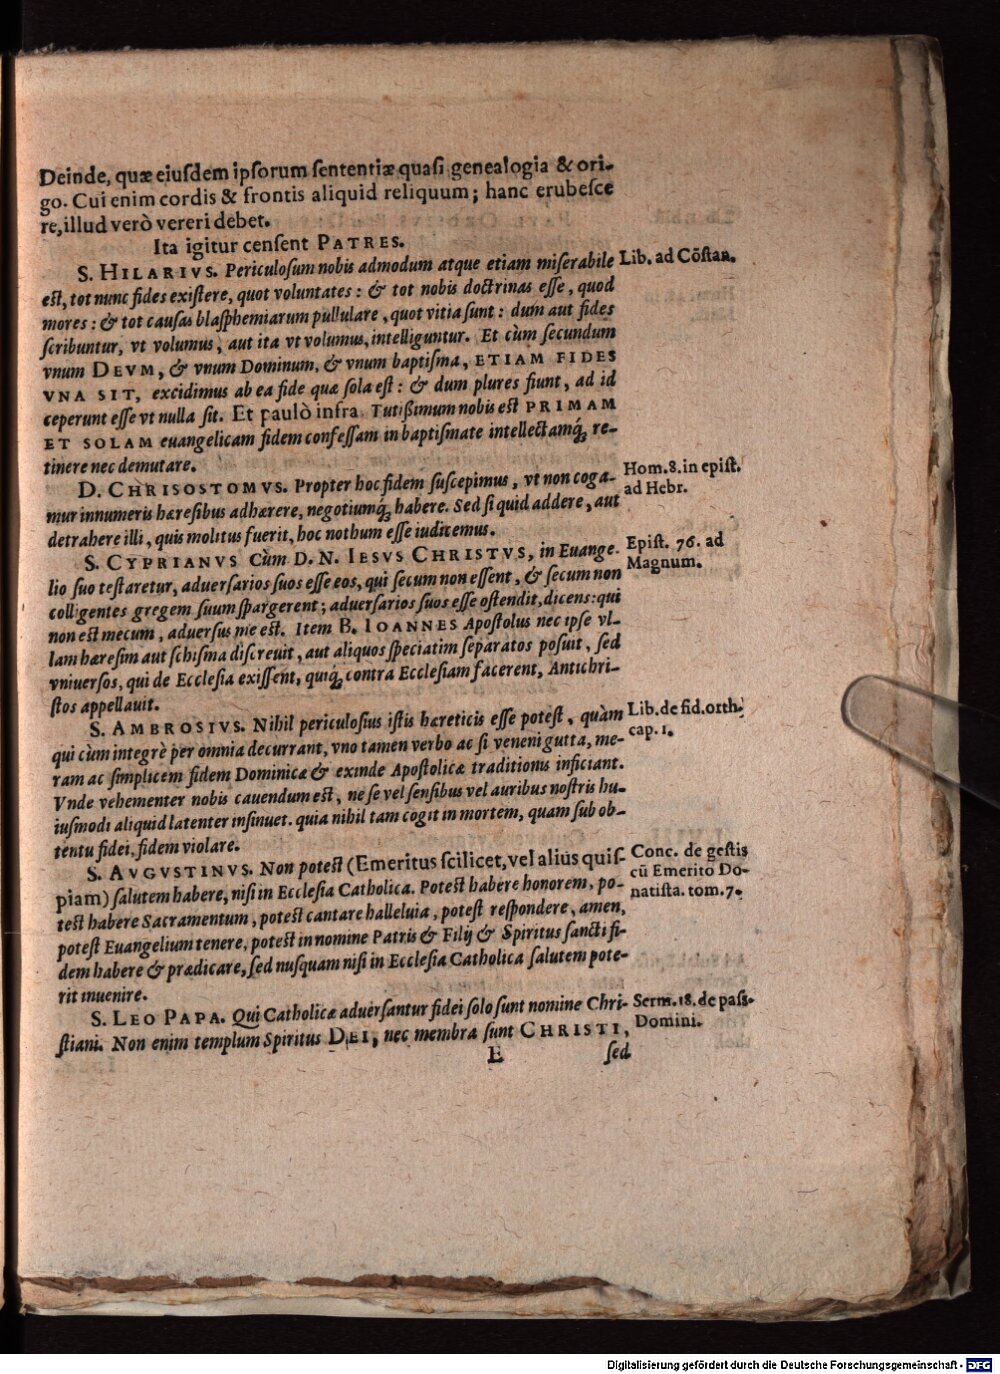 Deinde, quæ eiuſdem ipſorum ſententiæ quaſi genealogia & ori-
go. Cui enim cordis & frontis aliquid reliquum; hanc erubeſce
re, illud verò vereri debet.
Ita igitur cenſent PATRES.
S. HILARIVS. Periculoſum nobis admodum atque etiam miſerabile
Lib. ad Cōſtan.
eſt, tot nunc fides exiſtere, quot voluntates: & tot nobis doctrinas eſſe, quod
mores: & tot cauſas blaſphemiarum pullulare, quot vitia ſunt: dum aut fides
ſcribuntur, vt volumus, aut ita vt volumus, intelliguntur. Et cùm ſecundum
vnum DEVM, & vnum Dominum, & vnum baptiſma, ETIAM FIDES
VNA SIT, excidimus ab ea fide quæ ſola eſt: & dum plures fiunt, ad id
ceperunt eſſe vt nulla ſit. Et paulò infra. Tutißimum nobis eſt PRIMAM
ET SOLAM euangelicam fidem confeſſam in baptiſmate intellectamq́; re-
tinere nec demutare.
D. CHRISOSTOMVS. Propter hoc fidem ſuſcepimus, vt non coga-
Hom. 8. in epiſt.
ad Hebr.
mur innumeris hæreſibus adhærere, negotiumq́; habere. Sed ſi quid addere, aut
detrahere illi, quis molitus fuerit, hoc nothum eſſe iudicemus.
S. CYPRIANVS Cùm D. N. IESVS CHRISTVS, in Euange-
Epiſt. 76. ad
Magnum.
lio ſuo teſtaretur, aduerſarios ſuos eſſe eos, qui ſecum non eſſent, & ſecum non
colligentes gregem ſuum ſpargerent; aduerſarios ſuos eſſe oſtendit, dicens: qui
non eſt mecum, aduerſus me eſt. Item B. IOANNES Apoſtolus nec ipſe vl-
lam hæreſim aut ſchiſma diſcreuit, aut aliquos ſpeciatim ſeparatos poſuit, ſed
vniuerſos, qui de Eccleſia exiſſent, quiq́; contra Eccleſiam facerent, Antichri-
ſtos appellauit.
S. AMBROSIVS. Nihil periculoſius iſtis hæreticis eſſe poteſt, quàm
Lib. de fid. orth.
cap. 1.
qui cùm integrè per omnia decurrant, vno tamen verbo ac ſi veneni gutta, me-
ram ac ſimplicem fidem Dominicæ & exinde Apoſtolicæ traditionis inficiant.
Vnde vehementer nobis cauendum eſt, ne ſe vel ſenſibus vel auribus noſtris hu-
iuſmodi aliquid latenter inſinuet. quia nihil tam cogit in mortem, quam ſub ob-
tentu fidei, fidem violare.
S. AVGVSTINVS. Non poteſt (Emeritus ſcilicet, vel alius quiſ-
Conc. de geſtis
cū Emerito Do-
natiſta. tom. 7.
piam) ſalutem habere, niſi in Eccleſia Catholica. Poteſt habere honorem, po-
teſt habere Sacramentum, poteſt cantare halleluia, poteſt reſpondere, amen,
poteſt Euangelium tenere, poteſt in nomine Patris & Filij & Spiritus ſancti fi-
dem habere & prædicare, ſed nuſquam niſi in Eccleſia Catholica ſalutem pote-
rit inuenire.
S. LEO PAPA. Qui Catholicæ aduerſantur fidei ſolo ſunt nomine Chri-
Serm. 18. de paſſ.
Domini.
ſtiani. Non enim templum Spiritus DEI, nec membra ſunt CHRISTI,
E
ſed
Digitalisierung gefördert durch die Deutsche Forschungsgemeinschaft - DFG